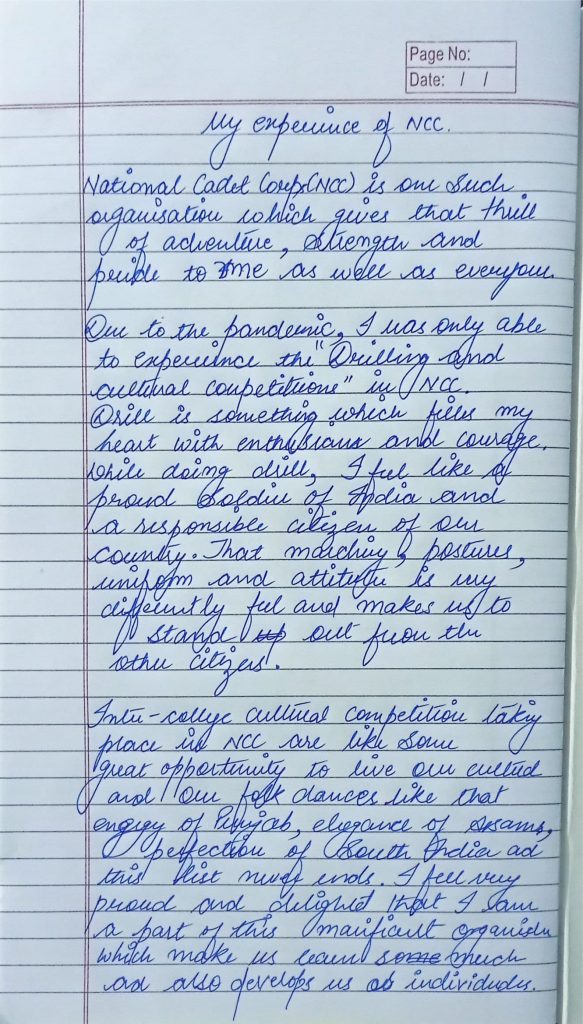 Page No:
Date: / /
My experience of NCC.
National Cadet Corps(NCC) is one such
organisation which gives that thrill
of adventure, strength and
pride to me as well as everyone.
Due to the pandemic, I was only able
to experience the "Drilling and
cultural competitions" in NCC.
Drill is something which fills my
heart with enthusiasm and courage.
While doing drill, I feel like a
proud Soldier of India and
a responsible citizen of our
country. That marching, postures,
uniform and attitude is very
differently feel and makes us to
stand up out from the
other citizens.
Inter-college cultural competition taking
place in NCC are like some
great opportunity to live our culture
and our folk dances like that
energy of Punjab, elegance of Assam,
perfection of South India ad
this list never ends. I feel very
proud and delighted that I am
a part of this manificent organisation
which make us learn some much
and also develops us as individuals.